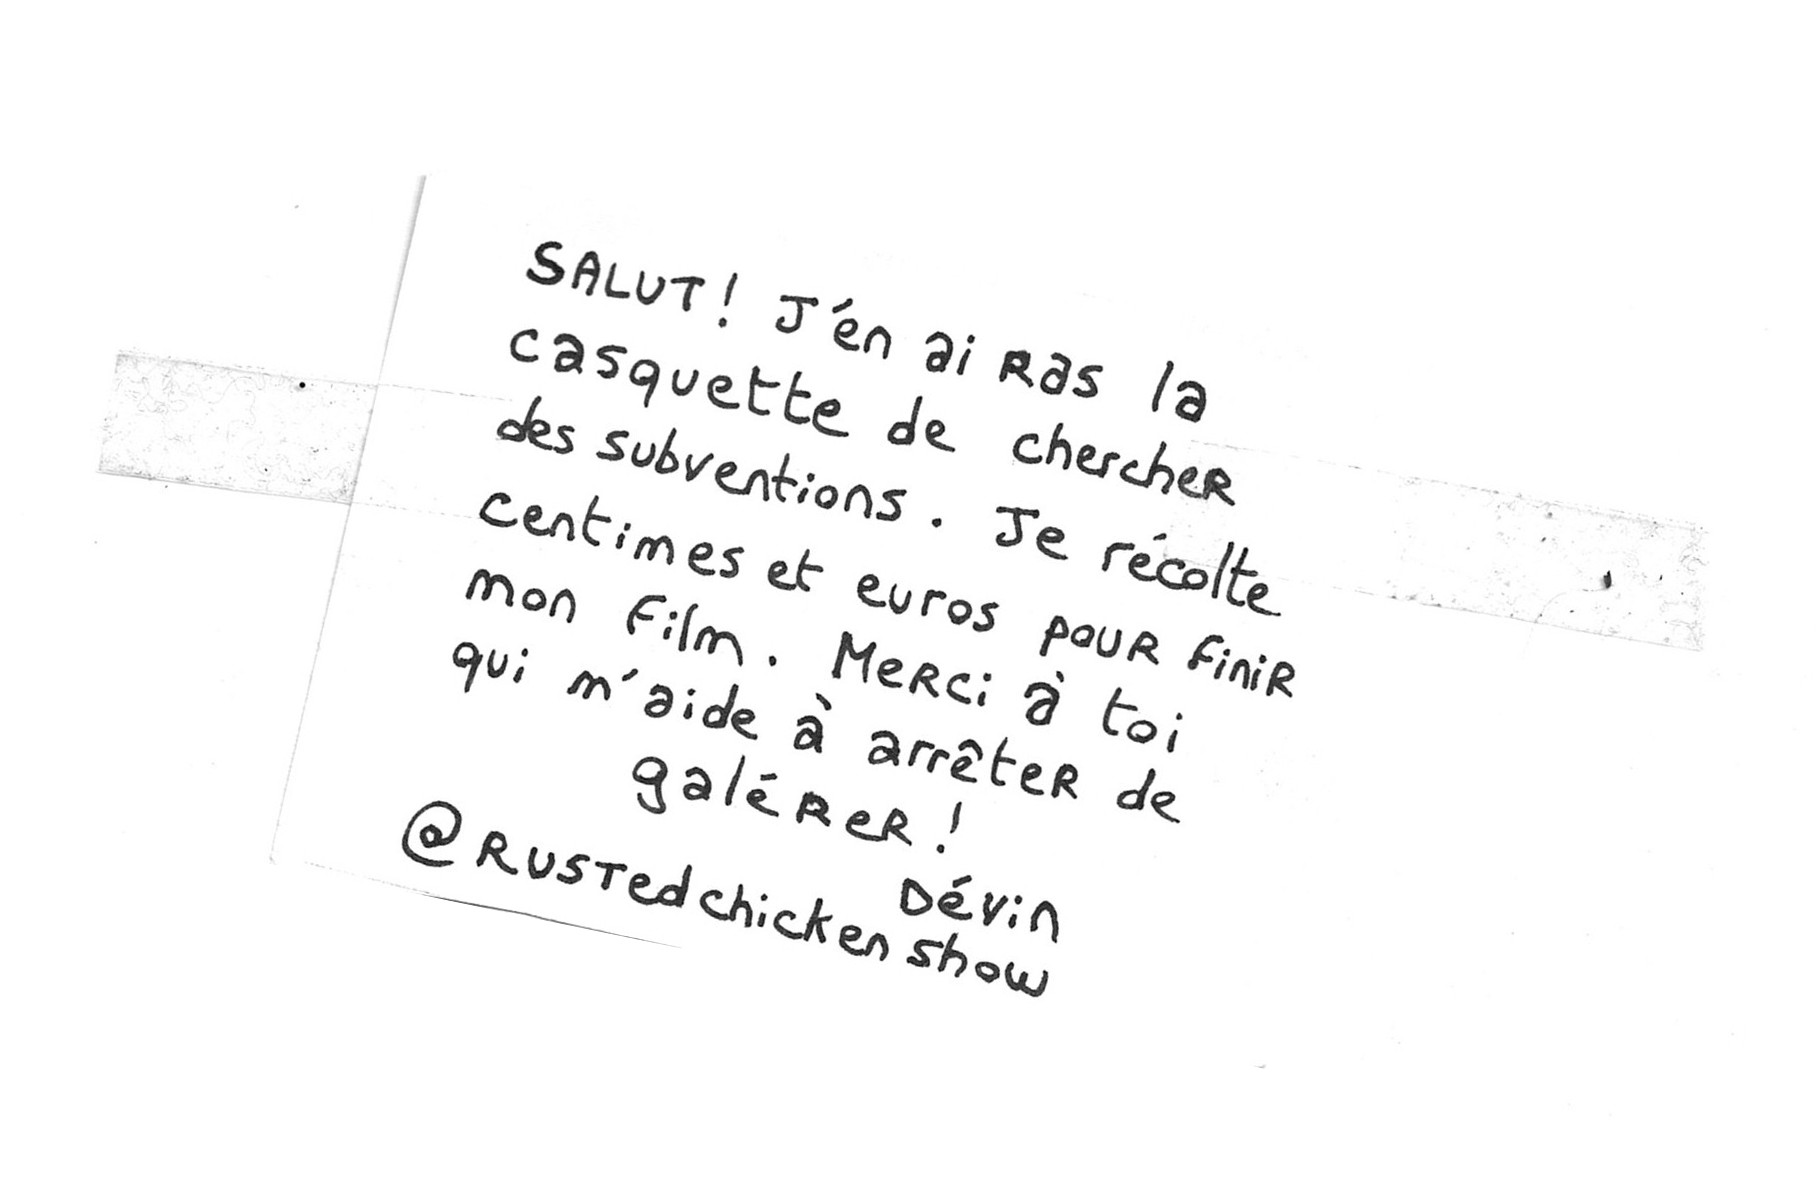 SALUT! J'en ai ras la
casquette de chercher
des subventions. Je récolte
centimes et euros pour finir
mon film. Merci à toi
qui m'aide à arrêter de
galérer!
Dévin
@Rustedchickenshow